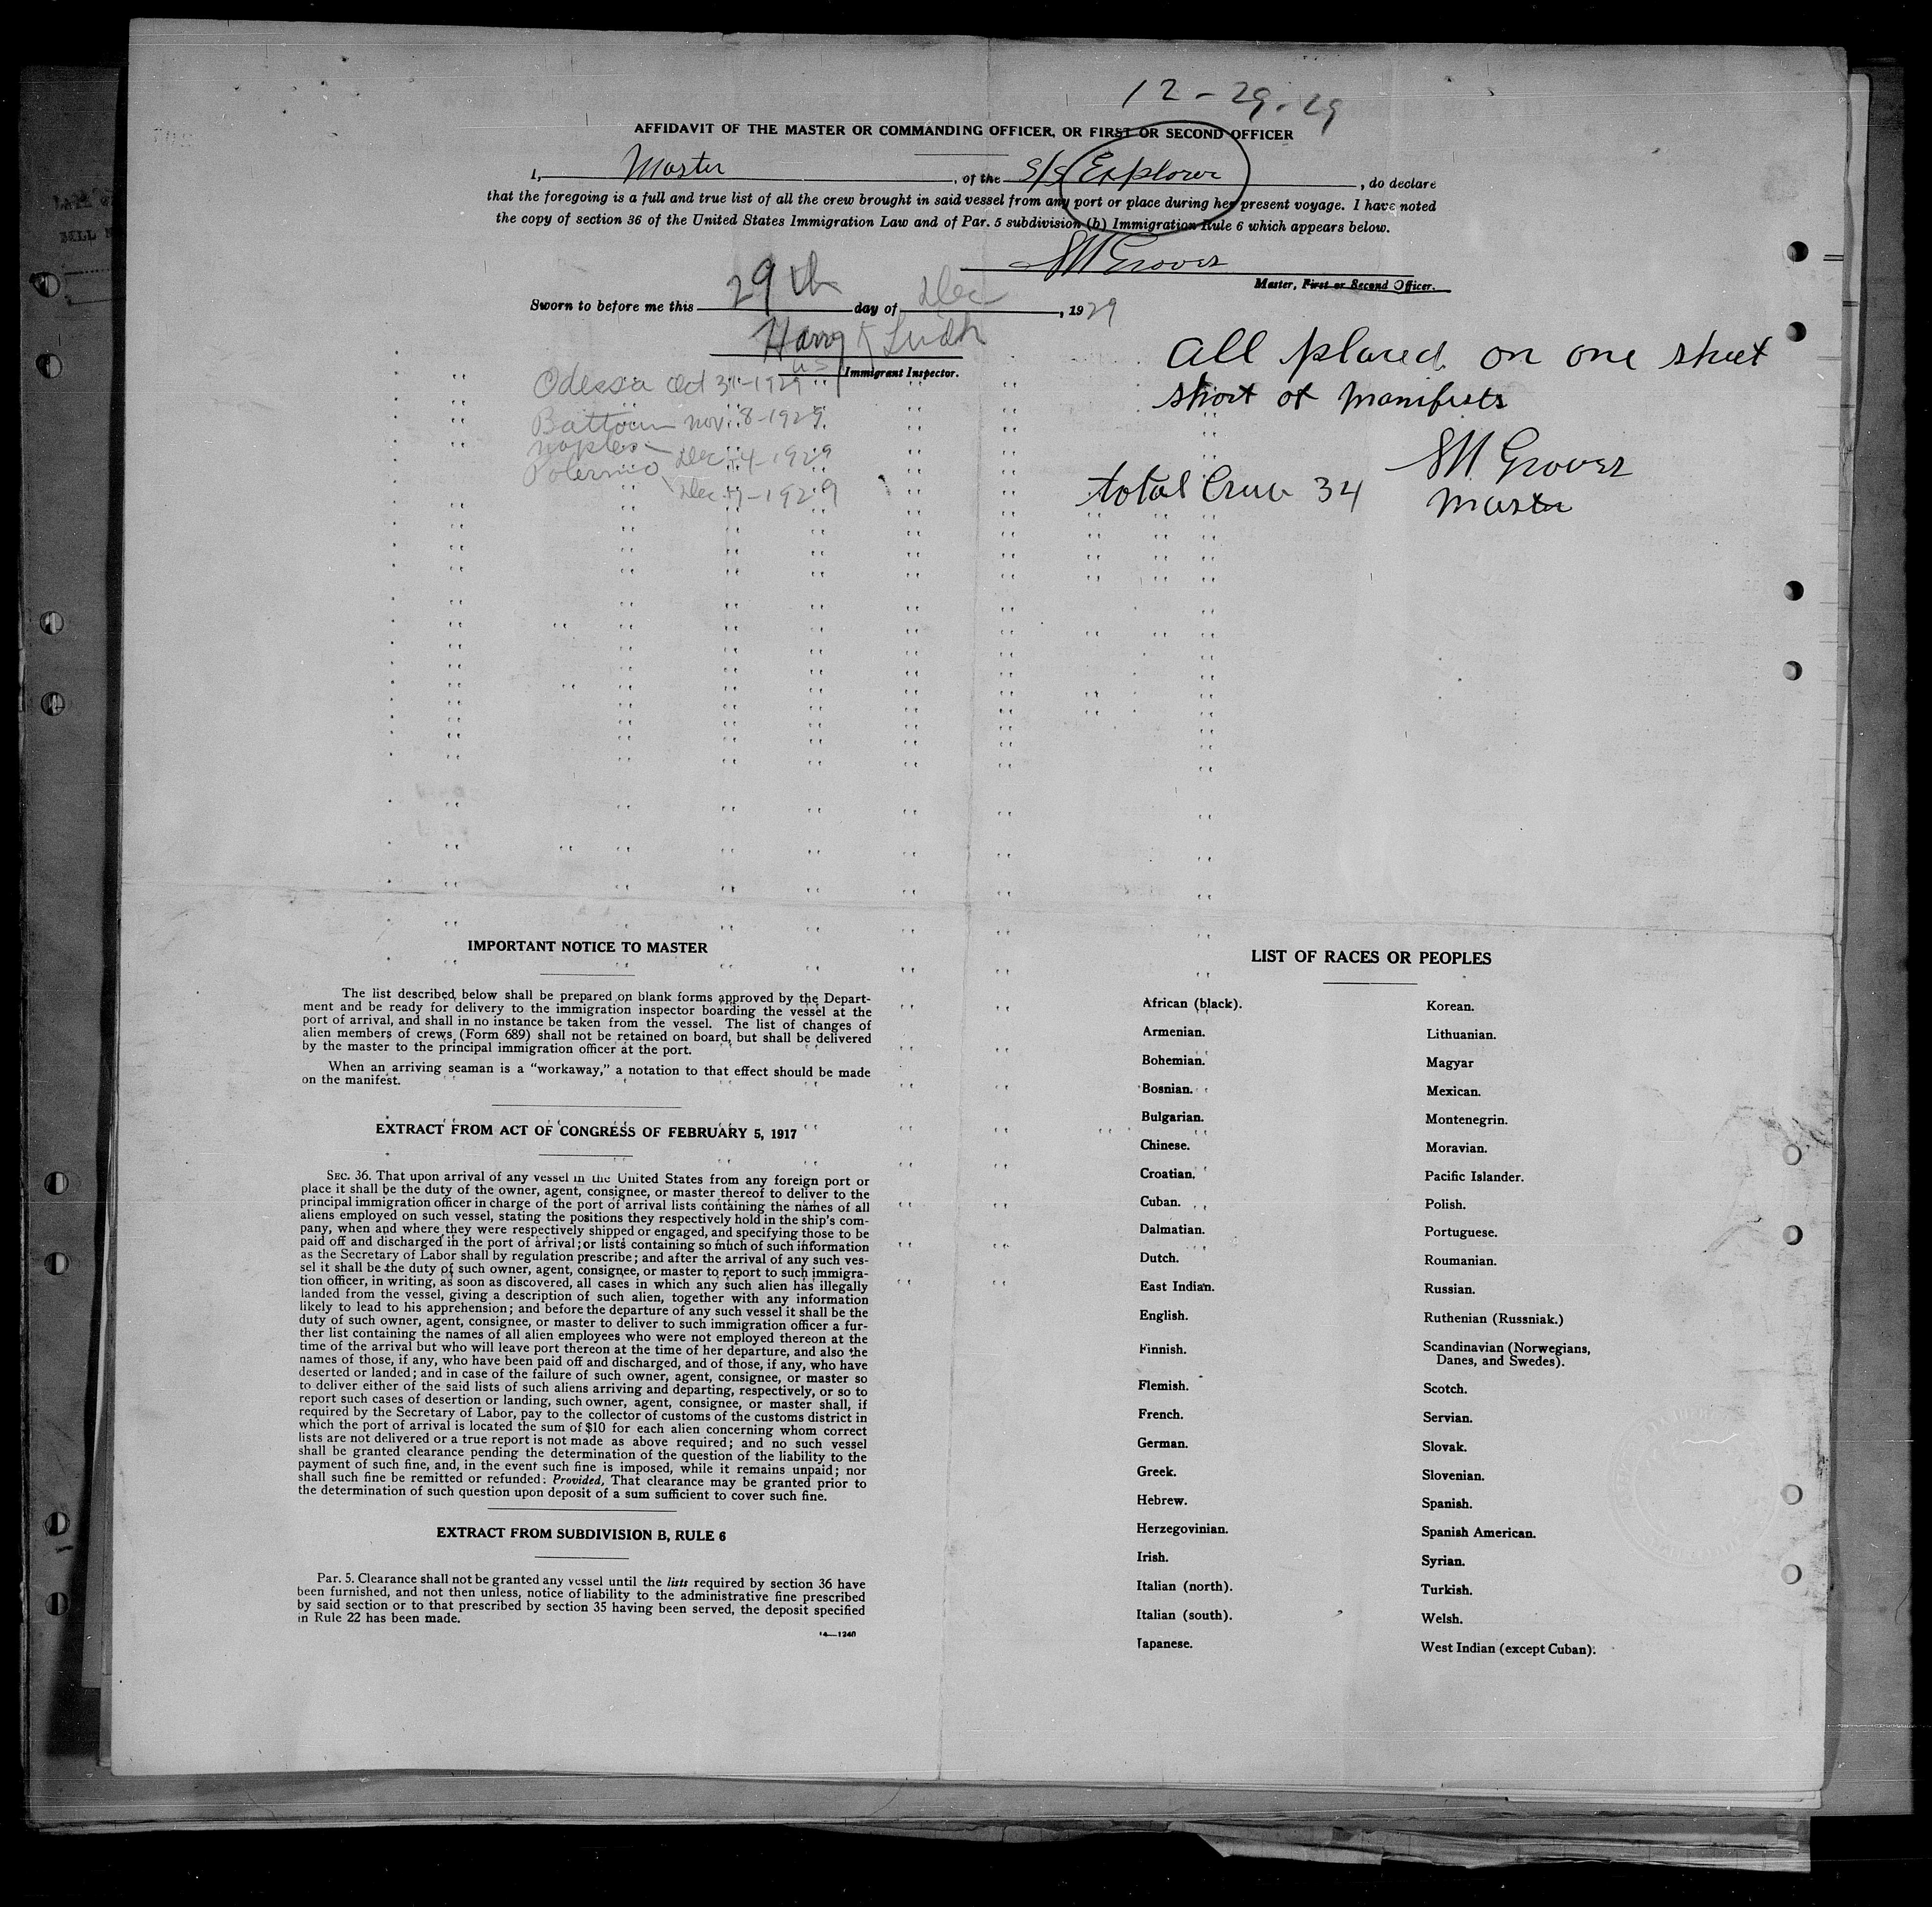 12-29-29
AFFIDAVIT OF THE MASTER OR COMMANDING OFFICER, OR FIRST OR SECOND OFFICER
I, Master, of the S/S Explorer, do declare
that the foregoing is a full and true list of all the crew brought in said vessel from any port or place during her present voyage. I have noted
the copy of section 36 of the United States Immigration Law and of Par. 5 subdivision (b) Immigration Rule 6 which appears below.
Grover
Master, First or Second Officer.
Sworn to before me this 29th day of Dec, 1929
Harry K
Immigrant Inspector.
Odessa Oct 31-1929
Battoum nov. 8-1929
naples Dec 4-1929
Polermo Dec 7-1929
all placed on one sheet
short of manifests
Grover
total Crew 34 Master
IMPORTANT NOTICE TO MASTER
The list described below shall be prepared on blank forms approved by the Depart-
ment and be ready for delivery to the immigration inspector boarding the vessel at the
port of arrival, and shall in no instance be taken from the vessel. The list of changes of
alien members of crews, (Form 689) shall not be retained on board, but shall be delivered
by the master to the principal immigration officer at the port.
When an arriving seaman is a "workaway," a notation to that effect should be made
on the manifest.
EXTRACT FROM ACT OF CONGRESS OF FEBRUARY 5, 1917
SEC. 36. That upon arrival of any vessel in the United States from any foreign port or
place it shall be the duty of the owner, agent, consignee, or master thereof to deliver to the
principal immigration officer in charge of the port of arrival lists containing the names of all
aliens employed on such vessel, stating the positions they respectively hold in the ship's com-
pany, when and where they were respectively shipped or engaged, and specifying those to be
paid off and discharged in the port of arrival; or lists containing so much of such information
as the Secretary of Labor shall by regulation prescribe; and after the arrival of any such ves-
sel it shall be the duty of such owner, agent, consignee, or master to report to such immigra-
tion officer, in writing, as soon as discovered, all cases in which any such alien has illegally
landed from the vessel, giving a description of such alien, together with any information
likely to lead to his apprehension; and before the departure of any such vessel it shall be the
duty of such owner, agent, consignee, or master to deliver to such immigration officer a fur-
ther list containing the names of all alien employees who were not employed thereon at the
time of the arrival but who will leave port thereon at the time of her departure, and also the
names of those, if any, who have been paid off and discharged, and of those, if any, who have
deserted or landed; and in case of the failure of such owner, agent, consignee, or master so
to deliver either of the said lists of such aliens arriving and departing, respectively, or so to
report such cases of desertion or landing, such owner, agent, consignee, or master shall, if
required by the Secretary of Labor, pay to the collector of customs of the customs district in
which the port of arrival is located the sum of $10 for each alien concerning whom correct
lists are not delivered or a true report is not made as above required; and no such vessel
shall be granted clearance pending the determination of the question of the liability to the
payment of such fine, and, in the event such fine is imposed, while it remains unpaid; nor
shall such fine be remitted or refunded: Provided, That clearance may be granted prior to
the determination of such question upon deposit of a sum sufficient to cover such fine.
EXTRACT FROM SUBDIVISION B, RULE 6
Par. 5. Clearance shall not be granted any vessel until the lists required by section 36 have
been furnished, and not then unless, notice of liability to the administrative fine prescribed
by said section or to that prescribed by section 35 having been served, the deposit specified
in Rule 22 has been made.
14—1240
LIST OF RACES OR PEOPLES
African (black).
Armenian.
Bohemian.
Bosnian.
Bulgarian.
Chinese.
Croatian.
Cuban.
Dalmatian.
Dutch.
East Indian.
English.
Finnish.
Flemish.
French.
German.
Greek.
Hebrew.
Herzegovinian.
Irish.
Italian (north).
Italian (south).
Japanese.
Korean.
Lithuanian.
Magyar
Mexican.
Montenegrin.
Moravian.
Pacific Islander.
Polish.
Portuguese.
Roumanian.
Russian.
Ruthenian (Russniak.)
Scandinavian (Norwegians,
Danes, and Swedes).
Scotch.
Servian.
Slovak.
Slovenian.
Spanish.
Spanish American.
Syrian.
Turkish.
Welsh.
West Indian (except Cuban).